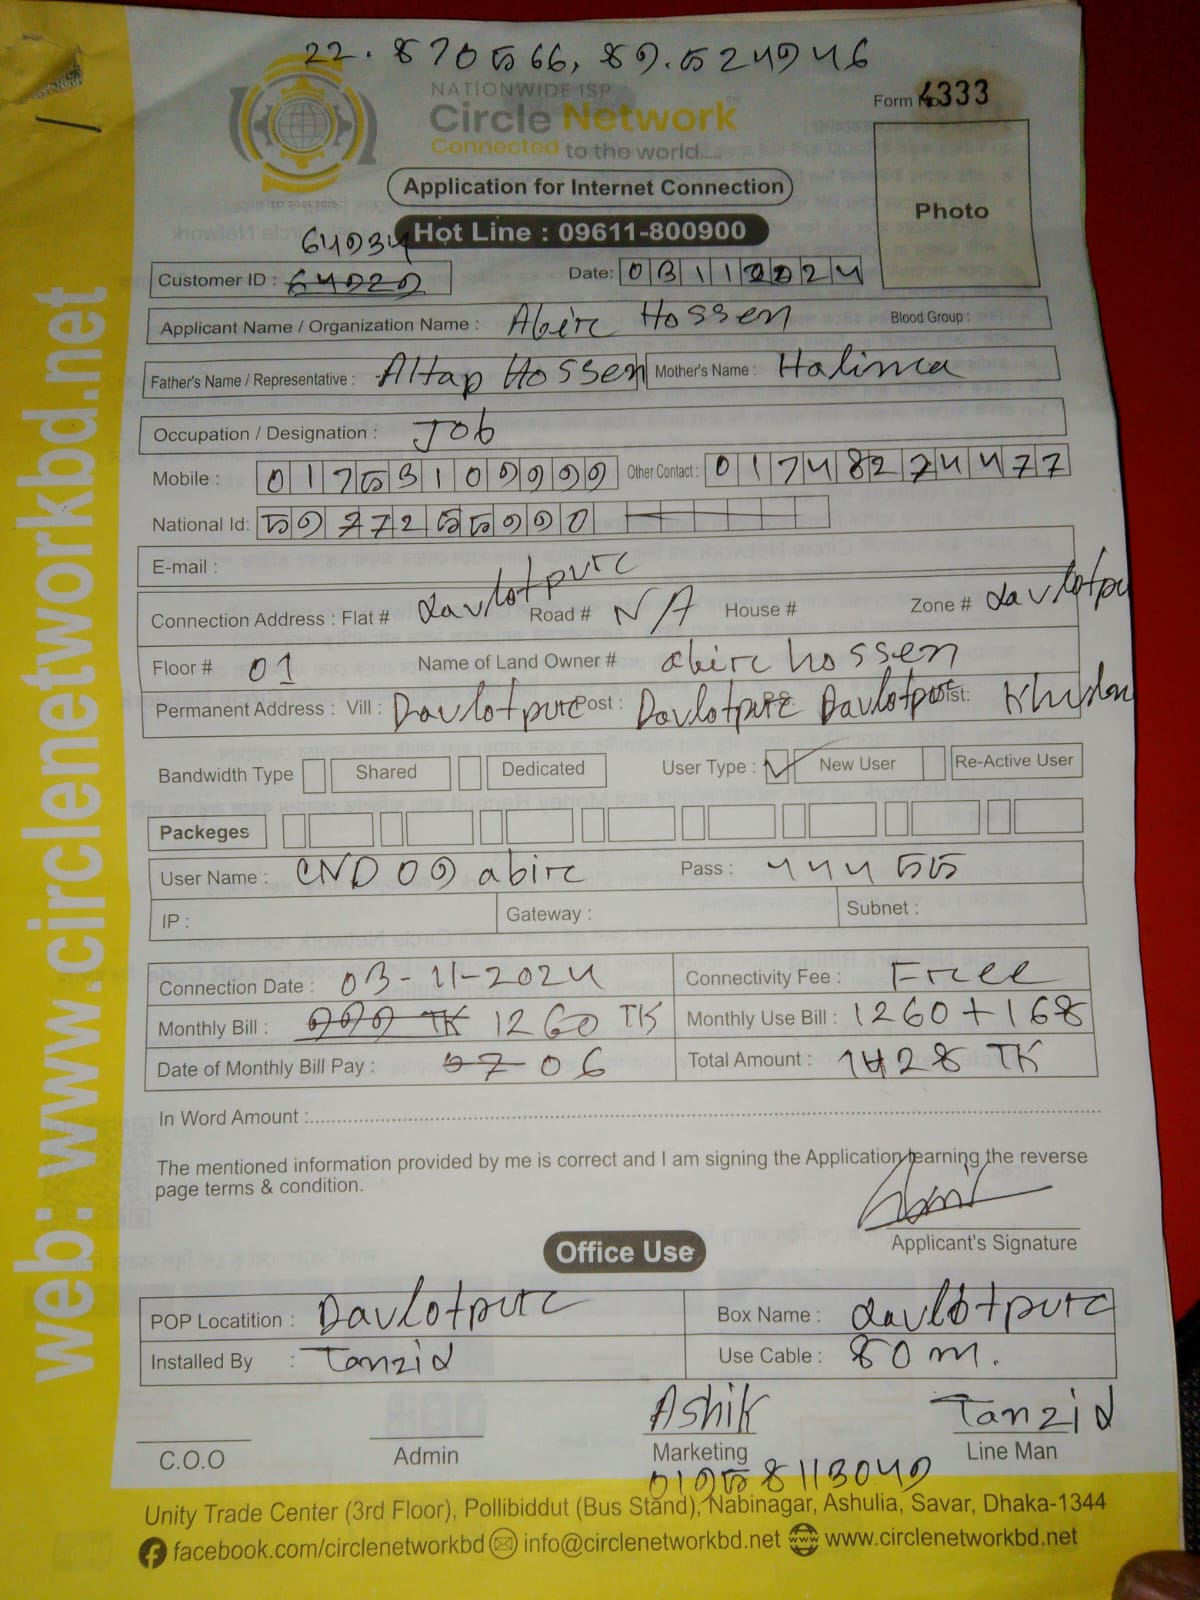 22.870566, 89.524946
NATIONWIDE ISP
Circle Network
Connected to the world.....
Form No 4333
Application for Internet Connection
Photo
Hot Line : 09611-800900
64934
Customer ID : Date: 03112024
Applicant Name / Organization Name : Abirc Hossen Blood Group :
Father's Name / Representative : Altap Hossen Mother's Name : Halima
Occupation / Designation : Job
Mobile : 01753109999 Other Contact : 01748274477
National Id: 5977255990
E-mail :
Connection Address : Flat # davlotpurc Road # N/A House # Zone # davlotpu
Floor # 01 Name of Land Owner # abirc hossen
Permanent Address : Vill : Davlotpurc Post : Davlotpure Davlotpur Dist:
Bandwidth Type Shared Dedicated User Type : ✓ New User Re-Active User
Packeges
User Name : CND 09 abirc Pass : 44455
IP : Gateway : Subnet :
Connection Date : 03-11-2024 Connectivity Fee : Free
Monthly Bill : 999 TK 1260 TK Monthly Use Bill : 1260+168
Date of Monthly Bill Pay : 07 06 Total Amount : 1428 TK
In Word Amount :
The mentioned information provided by me is correct and I am signing the Application learning the reverse
page terms & condition.
Applicant's Signature
Office Use
POP Locatition : Davlotpurc Box Name : davlotpurc
Installed By : Tanzid Use Cable : 80 m.
Ashik Tanzid
C.O.O Admin Marketing Line Man
01958113049
Unity Trade Center (3rd Floor), Pollibiddut (Bus Stand), Nabinagar, Ashulia, Savar, Dhaka-1344
facebook.com/circlenetworkbd info@circlenetworkbd.net www.circlenetworkbd.net
web: www.circlenetworkbd.net